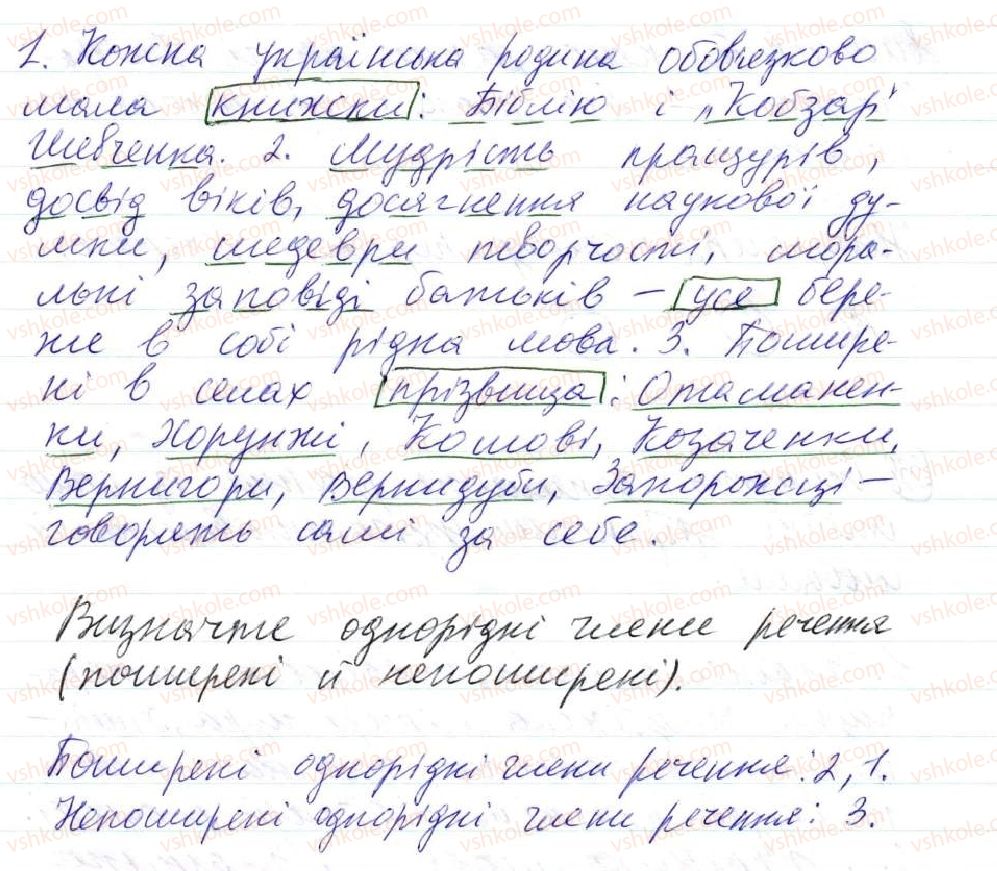 1. Кожна українська родина обов'язково
мала книжки: Біблію і „Кобзар"
Шевченка. 2. Мудрість пращурів,
досвід віків, досягнення наукової ду-
мки, шедеври творчості, мора-
льні заповіді батьків — усе бере-
же в собі рідна мова. 3. Пошире-
ні в селах прізвища: Отаманен-
ки, Хорунжі, Кошові, Козаченки,
Вернигори, Вернидуби, Запорожці —
говорять самі за себе.
Визначте однорідні члени речення
(поширені й непоширені).
Поширені однорідні члени речення: 2, 1.
Непоширені однорідні члени речення: 3.
vshkole.com